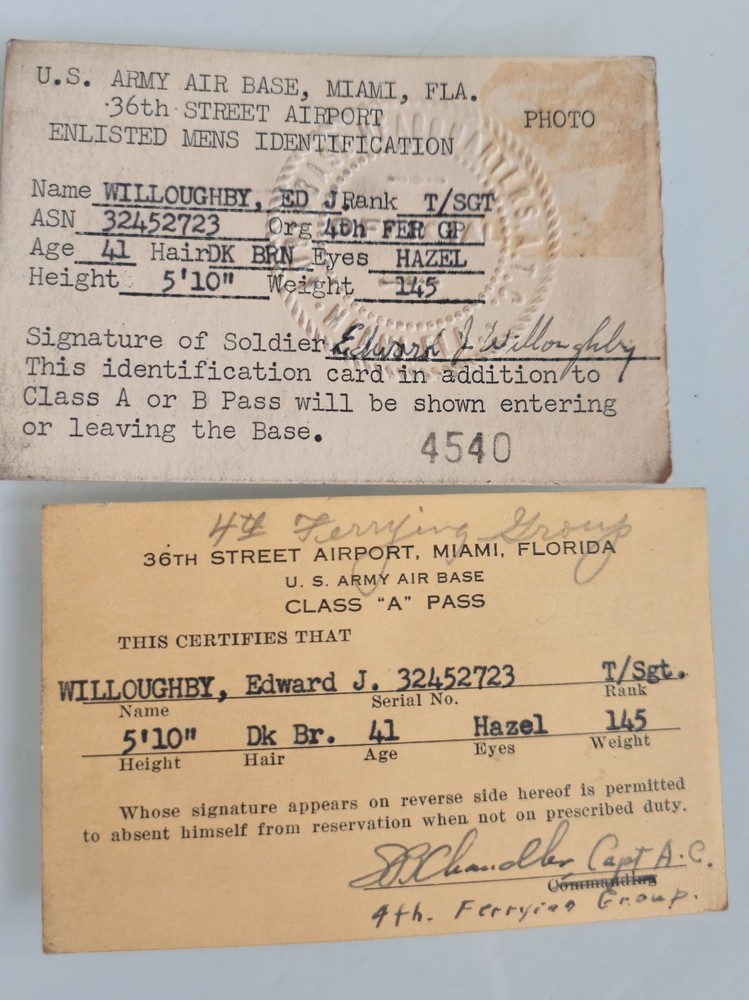 U.S. ARMY AIR BASE, MIAMI, FLA.
36th STREET AIRPORT
PHOTO
ENLISTED MENS IDENTIFICATION
Name WILLOUGHBY, ED J Rank T/SGT
ASN 32452723 Org 4th FER GP
Age 41 Hair DK BRN Eyes HAZEL
Height 5'10" Weight 145
Signature of Soldier Edward J Willoughby
This identification card in addition to
Class A or B Pass will be shown entering
or leaving the Base.
4540
4th Ferrying Group
36TH STREET AIRPORT, MIAMI, FLORIDA
U. S. ARMY AIR BASE
CLASS "A" PASS
THIS CERTIFIES THAT
WILLOUGHBY, Edward J. 32452723 T/Sgt.
Name Serial No. Rank
5'10" Dk Br. 41 Hazel 145
Height Hair Age Eyes Weight
Whose signature appears on reverse side hereof is permitted
to absent himself from reservation when not on prescribed duty.
Chandler Capt A.C.
Commanding
4th. Ferrying Group.